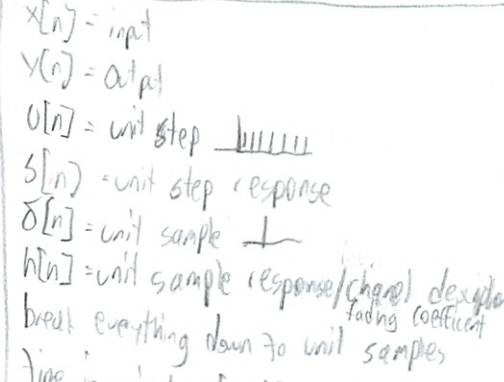 x[n] = input
y[n] = output
u[n] = unit step
s[n] = unit step response
δ[n] = unit sample
h[n] = unit sample response/
fading coefficent
break everything down to unit samples